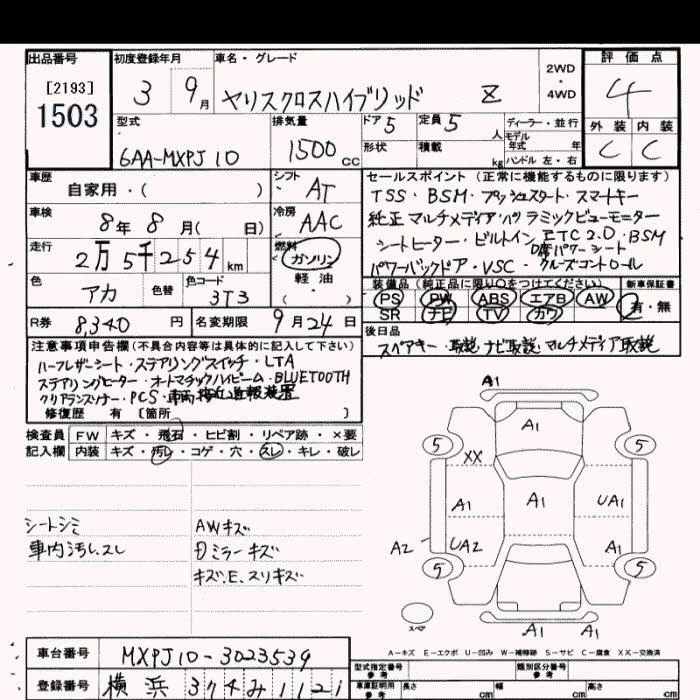 出品番号 初度登録年月 車名・グレード 評価点
[2193]
1503
3 9月 ヤリスクロスハイブリッド Z 2WD・4WD 4
型式 排気量 ドア5 定員5人 ディーラー・並行 外装 内装
6AA-MXPJ10 1500cc 形状 積載 kg モデル年式 年 ハンドル 左・右 C C
車歴 シフト セールスポイント(正常に機能するものに限ります)
自家用・( ) AT TSS・BSM・プッシュスタート・スマートキー
車検 冷房 純正マルチメディア・パノラミックビューモニター
8年8月( 日) AAC シートヒーター・ビルトインETC2.0・BSM
走行 燃料 D席パワーシート
2万5千254km ガソリン パワーバックドア・VSC・クルーズコントロール
色 色替 色コード 軽油 装備品(純正品に限り○をつけてください) 新車保証書
アカ 3T3 ( ) PS PW ABS エアB AW 有・無
SR ナビ TV カワ
R券 8,340円 名変期限 9月24日 後日品
スペアキー・取説・ナビ取説・マルチメディア取説
注意事項申告欄(不具合内容等は具体的に記入して下さい)
ハーフレザーシート・ステアリングスイッチ・LTA
ステアリングヒーター・オートマチックハイビーム・BLUETOOTH
クリアランスソナー・PCS・車両接近通報装置
修復歴 有 [箇所 ]
検査員 FW キズ・飛石・ヒビ割・リペア跡・×要
記入欄 内装 キズ・汚レ・コゲ・穴・スレ・キレ・破レ
シートシミ AWキズ
車内汚レ、スレ Dミラーキズ
キズ、E、スリキズ
A1
A1
5 5
XX
A1 A1 UA1
A2 UA2 A1
5 5
スペア A1 A1
A=キズ E=エクボ U=凹み W=補修跡 S=サビ C=腐食 XX=交換済
車台番号 MXPJ10-3023539
登録番号 横浜 374 み 1121
型式指定番号 参考 類別区分番号 参考
車庫証明用 参考 長さ cm 幅 cm 高さ cm